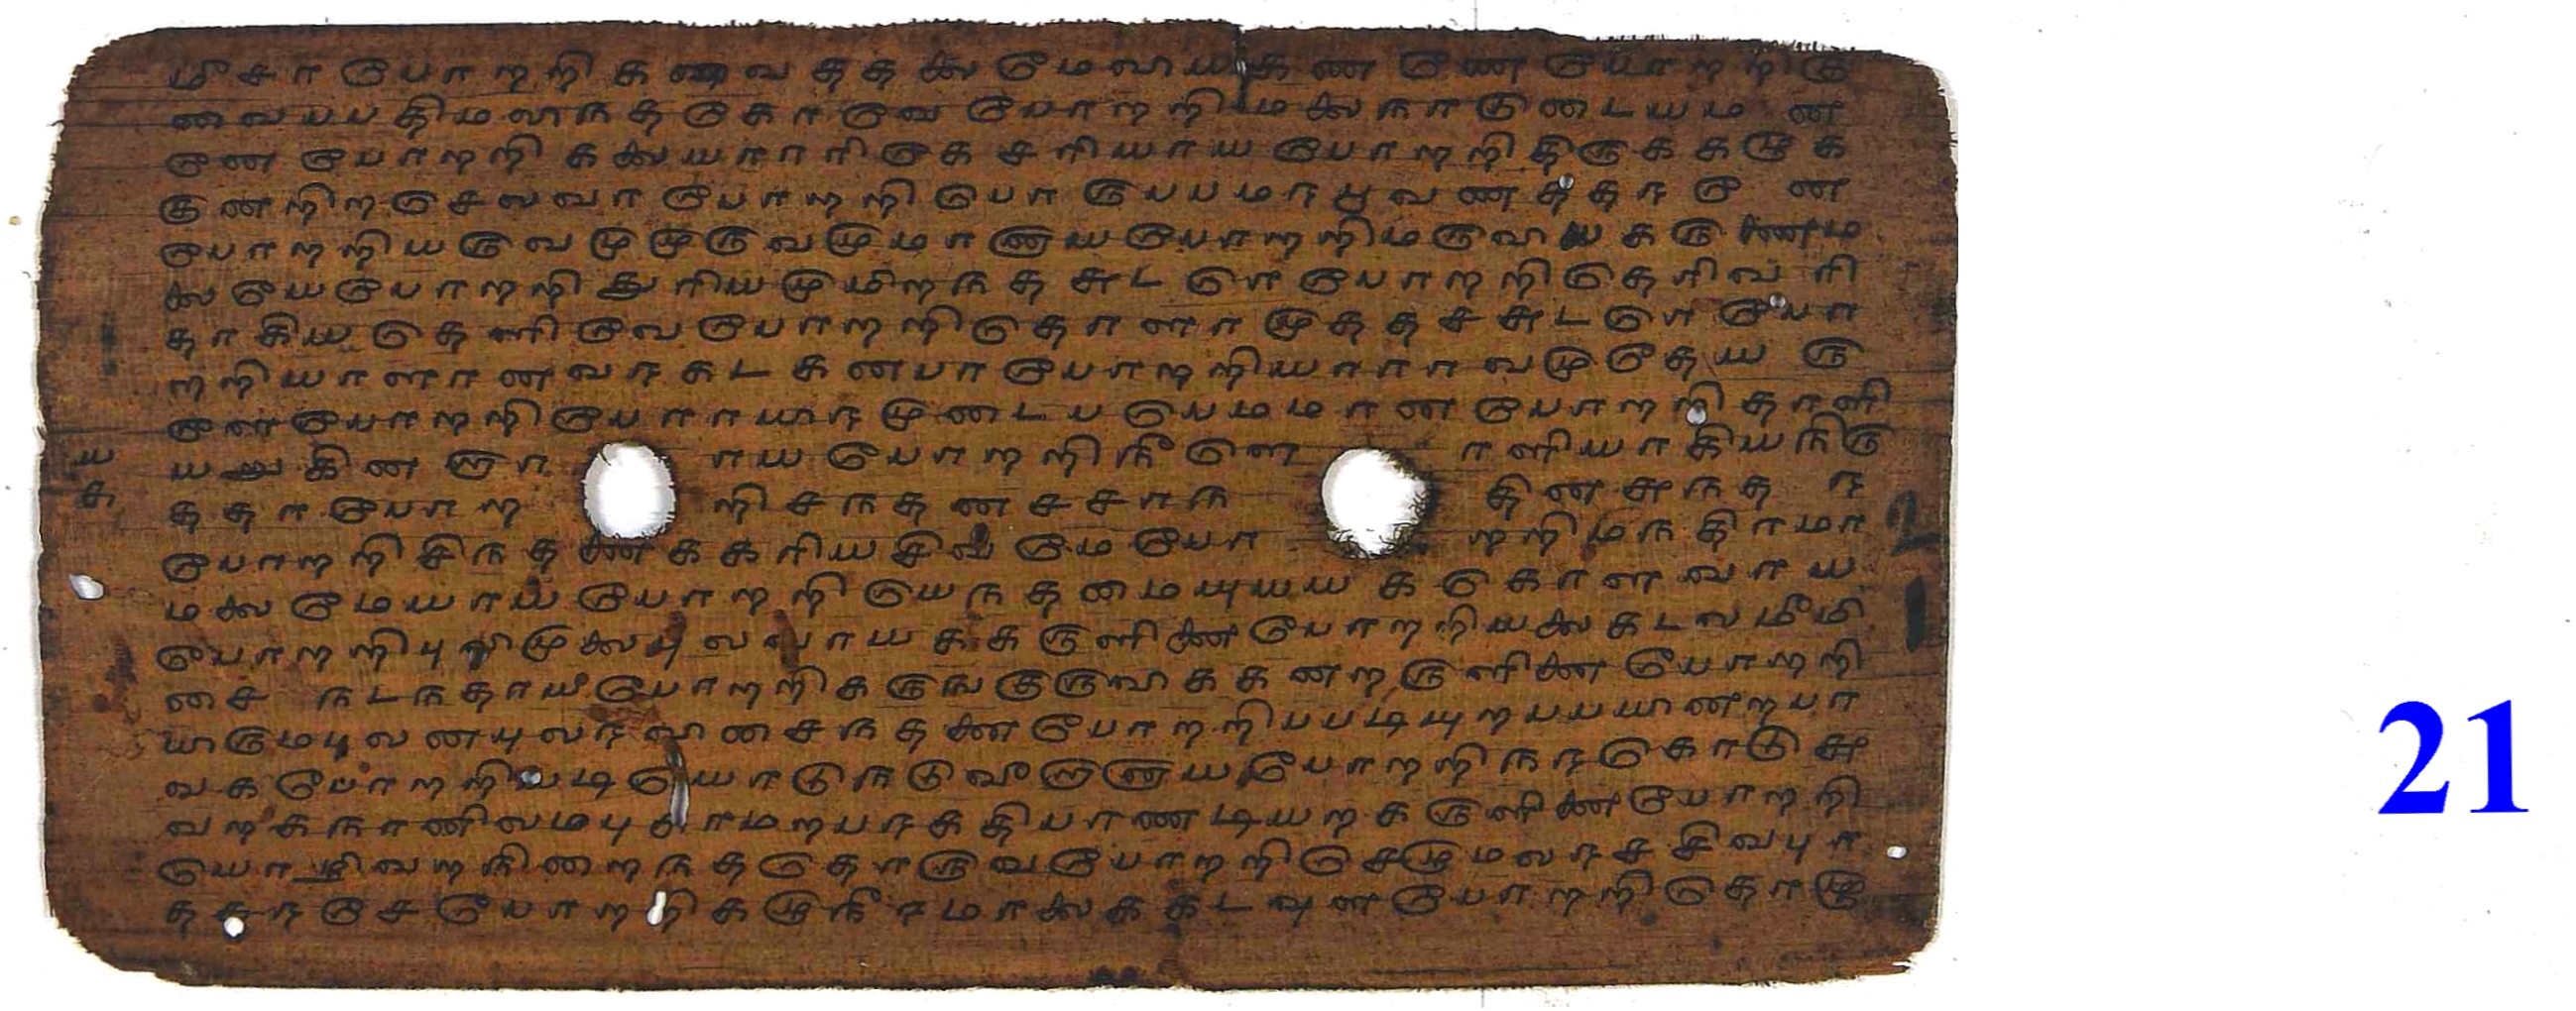 மீசா போறறி கணவ தத லை மேவிய கண ணே போறறிகு
வையயதிமலரந தகோவே போறறிமலைநாடுடையம ன
னே போறறி கலையாரரிகே சரியாய போறறிதிருககழுக
குனறிறசெலவா போறறி பொருபபமர பூவணததர னே
போறறியருவமுமுருவமுமானாயபோறறிமருவிய கருணைம
லையேபோறறி துரியமுமிறநத சுடரே போறறிதெரிவரி
தாகியதெளிவேபோறறிதோளாமுததசசுடரே போ
றறியாளானவரகடகனபா போறறியாராவமுதேய ரு
ளேபோறறிபேராயிரமுடையபெமமான போறறிதாளி
யறுகின றா ராய போறறிநீளொ ளியாகியநிரு
ததாபோற றிசநதனசசாந தினசுநத ர
போறறிசிநதனைககரியசிவமேபோ றறிமநதிரமா
மலைமேயாய போறறி யெநதமையுயய க கொளவாய
போறறிபுலிமுலைபுலவாயககருளினை போறறியலைகடலமீமி
சை நடநதாய போறறிகருஙகுருவிககனறருளினை போறறி
யிருமபுலனபுலரவிசைநதனை போறறிபபடியுறபபயினறபா
வகபோறறியடியொடுநடுவீறானாயபோறறிநரகொடுசு
வறகநானிலமபுகாமறபரகதிபாணடியறகருளினைபோறறி
யொழிவறநிறைநததொருவபோறறிசெழுமலரசசிவபுர
ததரசேபோறறிகழுநீரமாலைககடவுளபோறறிதொழு
ய
௪
21
21